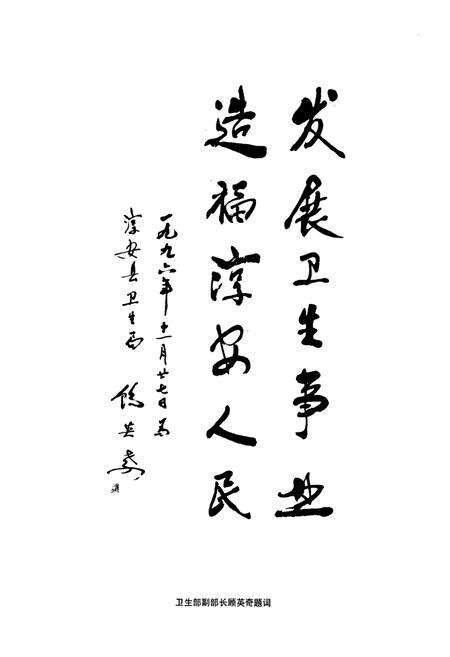 发展卫生事业
造福淳安人民
一九九六年十一月廿七日为
淳安县卫生局
顾英奇
卫生部副部长顾英奇题词